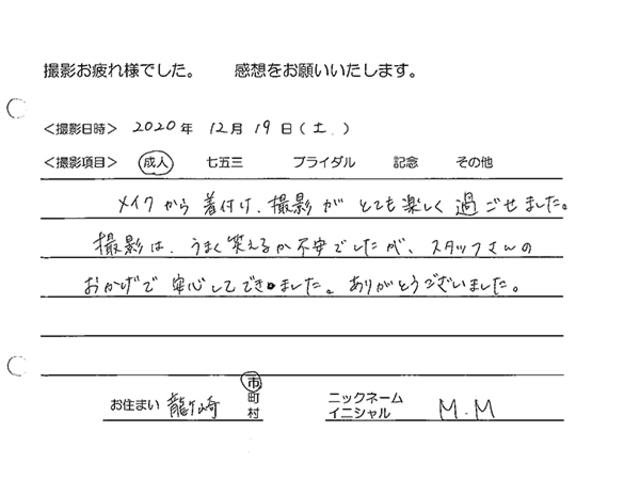 撮影お疲れ様でした。 感想をお願いいたします。
＜撮影日時＞ 2020年 12月 19日（土.）
＜撮影項目＞ 成人 七五三 ブライダル 記念 その他
メイクから着付け、撮影がとても楽しく過ごせました。
撮影は、うまく笑えるか不安でしたが、スタッフさんの
おかげで安心してできました。ありがとうございました。
お住まい 龍ヶ崎 市 町 村 ニックネーム イニシャル M.M